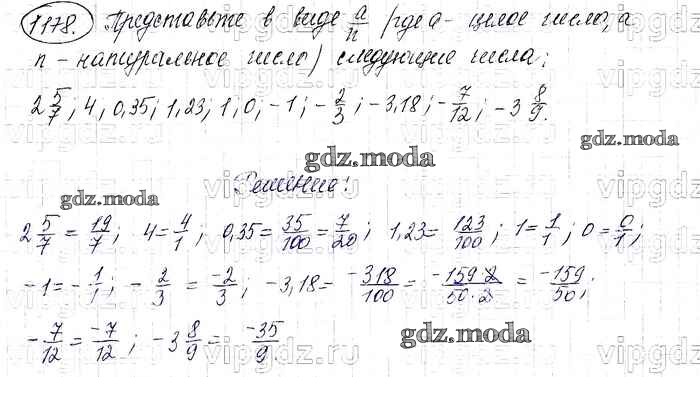 1178. Представьте в виде a/n (где a - целое число, а
n - натуральное число) следующие числа:
2 5/7; 4, 0,35; 1,23, 1, 0, -1; -2/3; -3,18; -7/12; -3 8/9.
gdz.moda
gdz.moda
Решение:
gdz.moda
2 5/7 = 19/7; 4 = 4/1; 0,35 = 35/100 = 7/20; 1,23 = 123/100; 1 = 1/1; 0 = 0/1;
-1 = -1/1; -2/3 = -2/3; -3,18 = -318/100 = -159·2/50·2 = -159/50;
-7/12 = -7/12; -3 8/9 = -35/9.
gdz.moda
vipgdz.ru